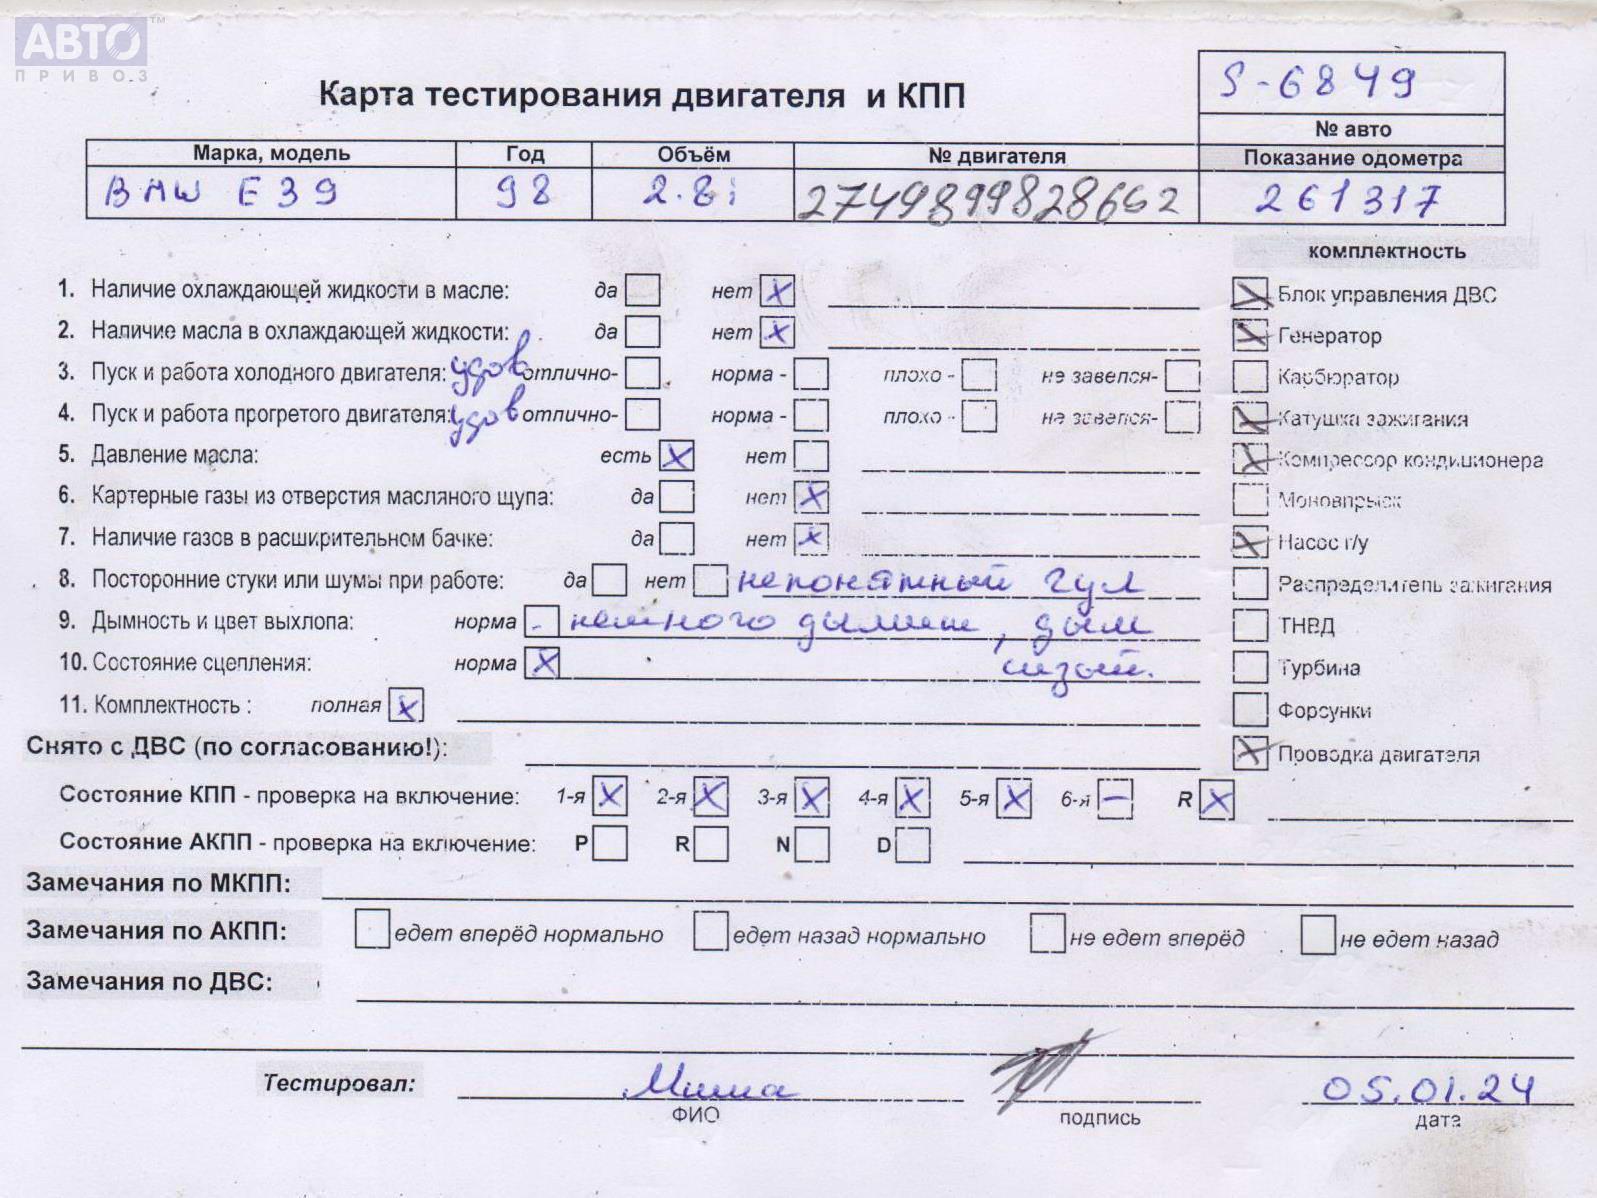 АВТО™
ПРИВОЗ
Карта тестирования двигателя и КПП
S-6849
№ авто
Марка, модель Год Объём № двигателя Показание одометра
BMW E39 98 2.8i 2749899828662 261317
комплектность
1. Наличие охлаждающей жидкости в масле: да нет X
Блок управления ДВС X
2. Наличие масла в охлаждающей жидкости: да нет X
Генератор X
3. Пуск и работа холодного двигателя: удов отлично- норма - плохо - не завелся-
Карбюратор
4. Пуск и работа прогретого двигателя: удов отлично- норма - плохо - не завелся-
Катушка зажигания X
5. Давление масла: есть X нет
Компрессор кондиционера X
6. Картерные газы из отверстия масляного щупа: да нет X
Моновпрыск
7. Наличие газов в расширительном бачке: да нет X
Насос г/у X
8. Посторонние стуки или шумы при работе: да нет непонятный гул
Распределитель зажигания
9. Дымность и цвет выхлопа: норма - немного дымит, дым
ТНВД
10. Состояние сцепления: норма X сизый.
Турбина
11. Комплектность : полная X
Форсунки
Снято с ДВС (по согласованию!):
Проводка двигателя X
Состояние КПП - проверка на включение: 1-я X 2-я X 3-я X 4-я X 5-я X 6-я — R X
Состояние АКПП - проверка на включение: P R N D
Замечания по МКПП:
Замечания по АКПП: едет вперёд нормально едет назад нормально не едет вперёд не едет назад
Замечания по ДВС:
Тестировал: Миша 05.01.24
ФИО подпись дата